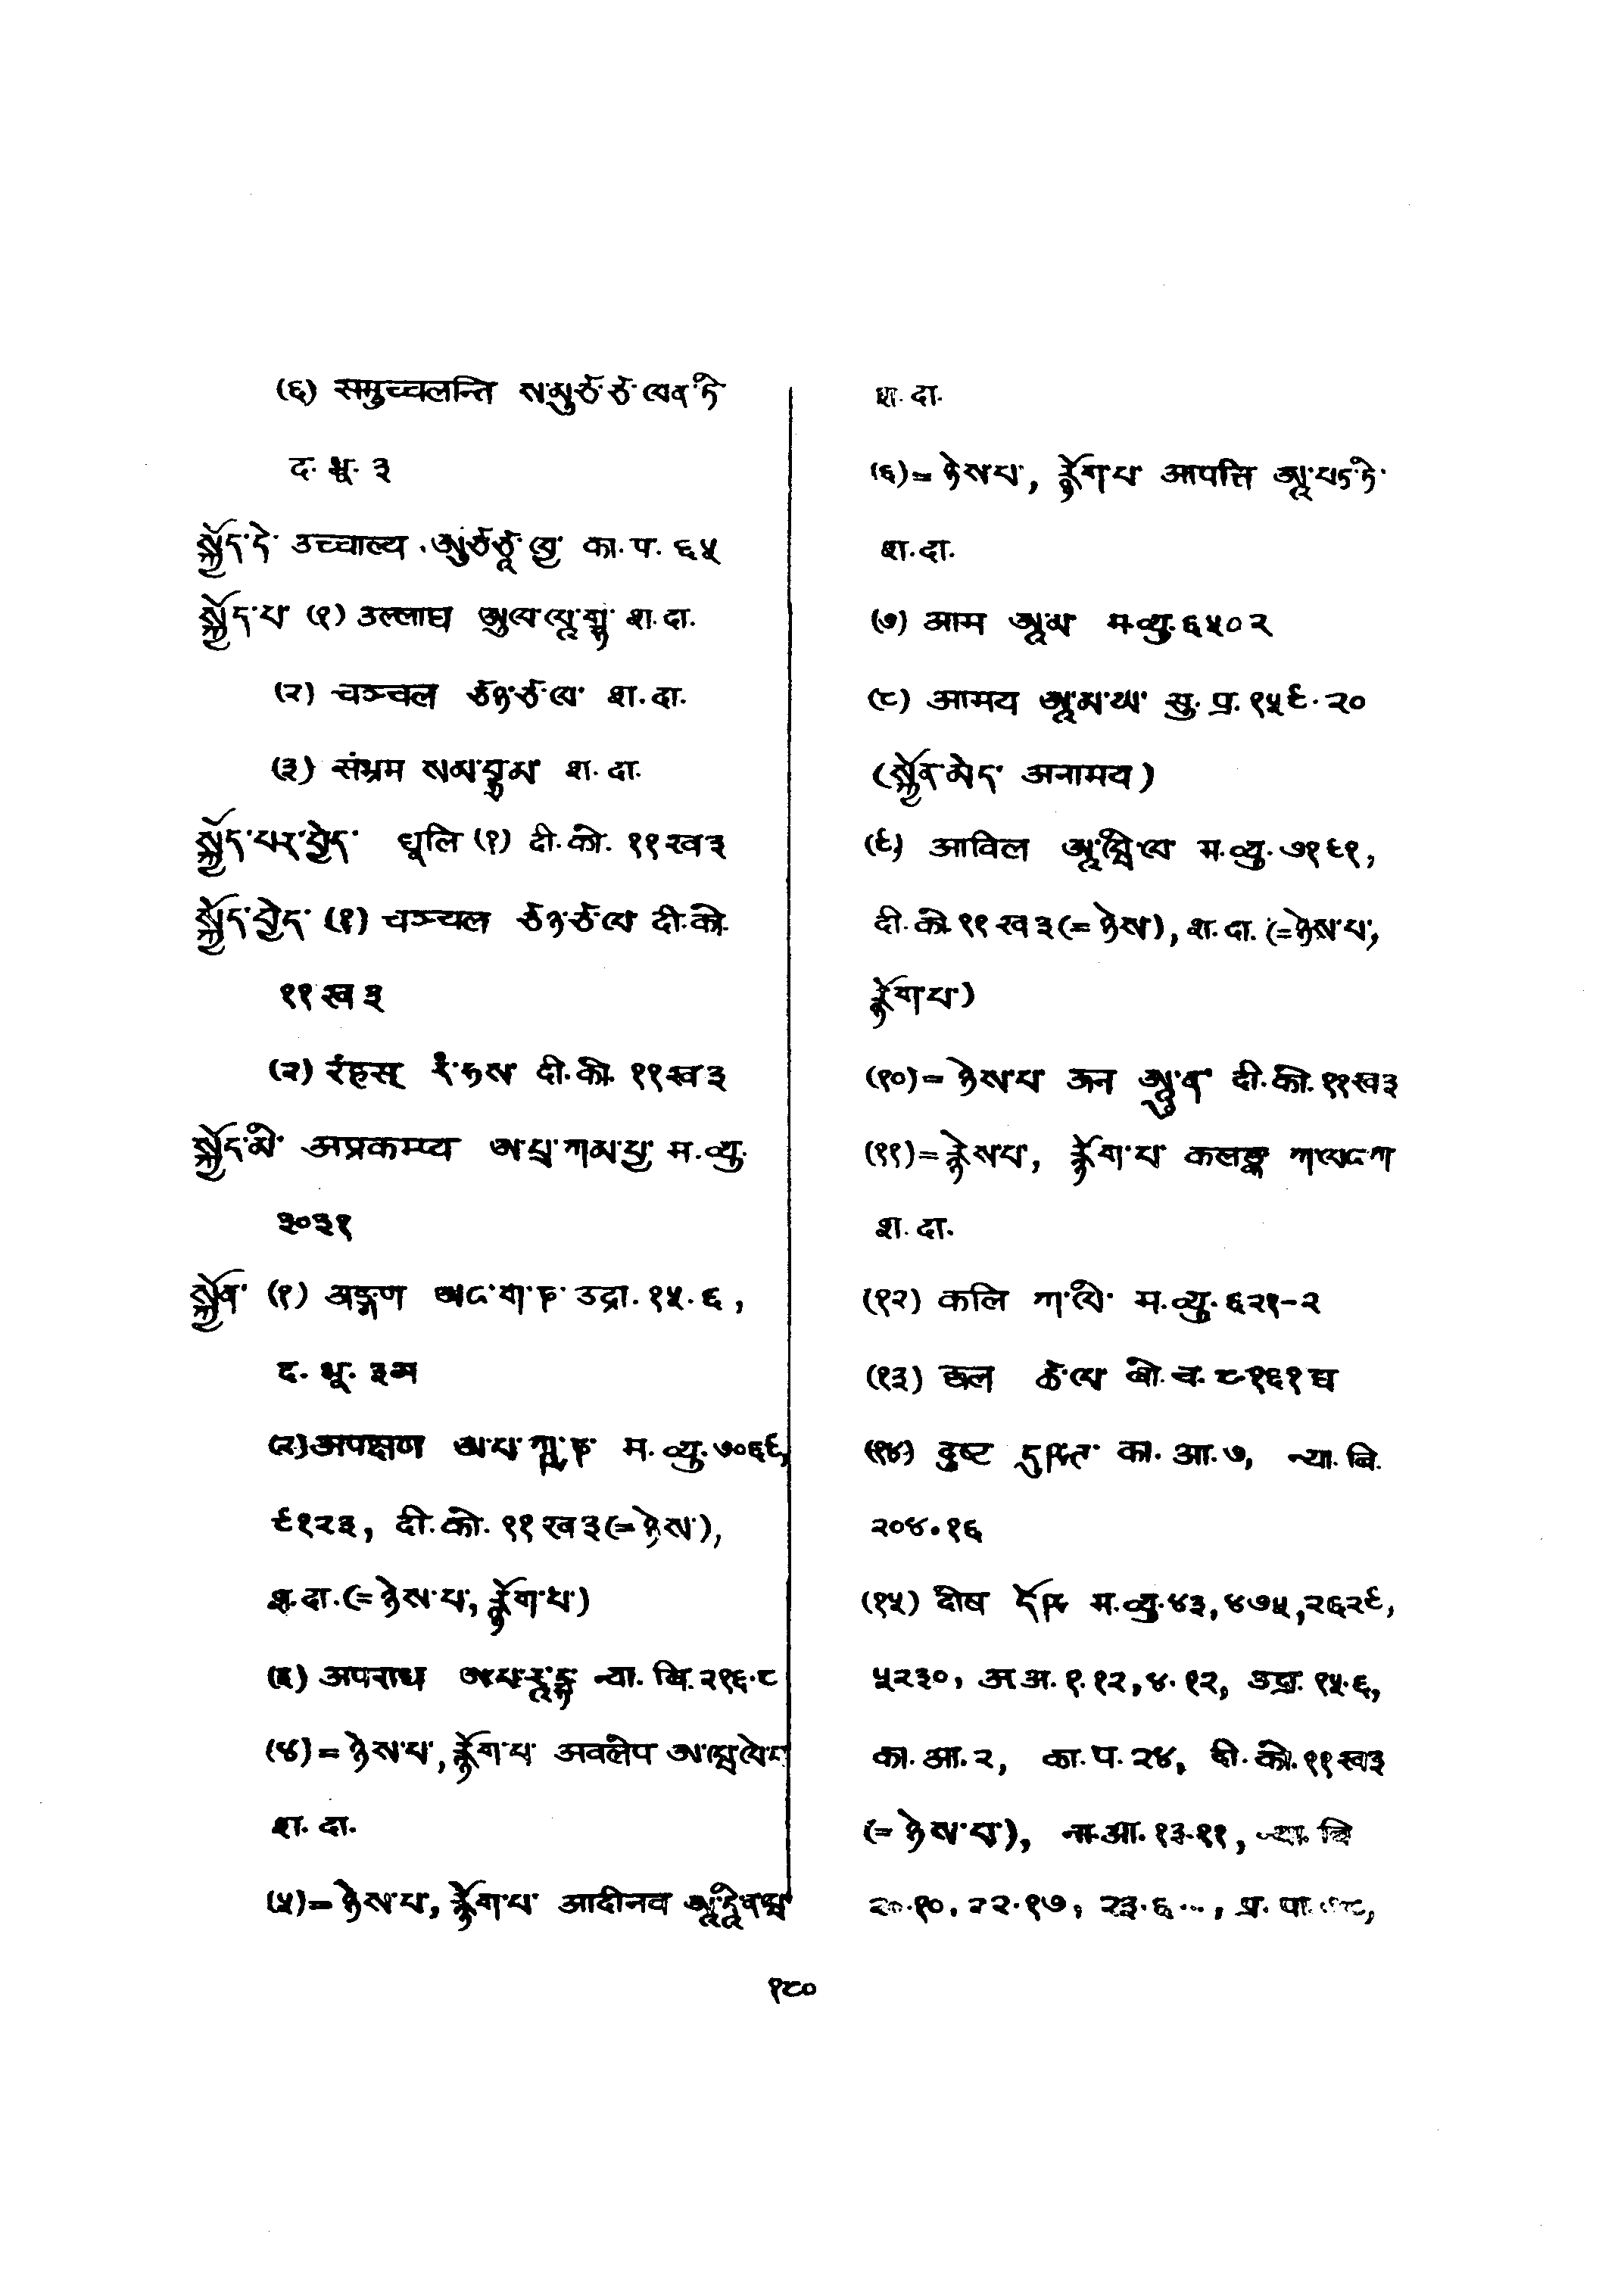 (६) समुच्चलन्ति ས་མུཙྪ་ཙ་ལནྟི
द. भू. ३
སྐྱོད་དེ་ उच्चाल्य ཨུཙྩཱ་ལྱ་ का. प. ६५
སྐྱོད་པ་ (१) उल्लाघ ཨུལ་ལཱ་གྷ་ श. दा.
(२) चञ्चल ཙཉ་ཙ་ལ་ श. दा.
(३) संभ्रम སམ་བྷྲམ་ श. दा.
སྐྱོད་པར་བྱེད་ धूलि (१) दी. को. ११ ख ३
སྐྱོད་བྱེད་ (१) चञ्चल ཙཉ་ཙ་ལ་ दी. को.
११ ख ३
(२) रंहस् རཾ་ཧས་ दी. को. ११ ख ३
སྐྱོད་མི་ अप्रकम्प्य ཨ་པྲ་ཀམ་པྱ་ म. व्यु.
३०३१
སྐྱོན་ (१) अङ्गण ཨང་ག་ཎ་ उद्रा. १५.६,
द. भू. ३म
(२) अपक्षाण ཨ་པ་ཀྵཱ་ཎ་ म. व्यु. ७०६९,
९१२३, दी. को. ११ ख ३ (= ཉེས་),
श. दा. (= ཉེས་པ་, རྙོག་པ་)
(३) अपराध ཨ་པ་རཱ་དྷ་ न्या. बि. २१६.८
(४) = ཉེས་པ་, རྙོག་པ་ अवलेप ཨ་ཝ་ལེ་པ་
श. दा.
(५) = ཉེས་པ་, རྙོག་པ་ आदीनव ཨཱ་དཱི་ན་ཝ་
श. दा.
(६) = ཉེས་པ་, རྙོག་པ་ आपत्ति ཨཱ་པཏ་ཏི་
श. दा.
(७) आम ཨཱ་མ་ म. व्यु. ६५०२
(८) आमय ཨཱ་མ་ཡ་ सु. प्र. १५९.२०
(སྐྱོན་མེད་ अनामय)
(९) आविल ཨཱ་ཝི་ལ་ म. व्यु. ७१९१,
दी. को. ११ ख ३ (= ཉེས་), श. दा. (= ཉེས་པ་,
རྙོག་པ་)
(१०) = ཉེས་པ་ ऊन ཨཱུ་ན་ दी. को. ११ ख ३
(११) = ཉེས་པ་, རྙོག་པ་ कलङ्क ཀ་ལང་ཀ་
श. दा.
(१२) कलि ཀ་ལི་ म. व्यु. ६२१-२
(१३) छल ཚ་ལ་ बो. च. ८.१६१ घ
(१४) दुष्ट དུཥྚ་ का. आ. ७, न्या. बि.
२०४.१६
(१५) दोष དོ་ཥ་ म. व्यु. ४३, ४७५, २६२९,
५२३०, अ. अ. १.१२, ४.१२, उद्रा. १५.६,
का. आ. २, का. प. २४, दी. को. ११ ख ३
(= ཉེས་པ་), ना. आ. १३.११, न्या. बि
२०.१०, २२.१७, २३.६..., प्र. पा.
१८०